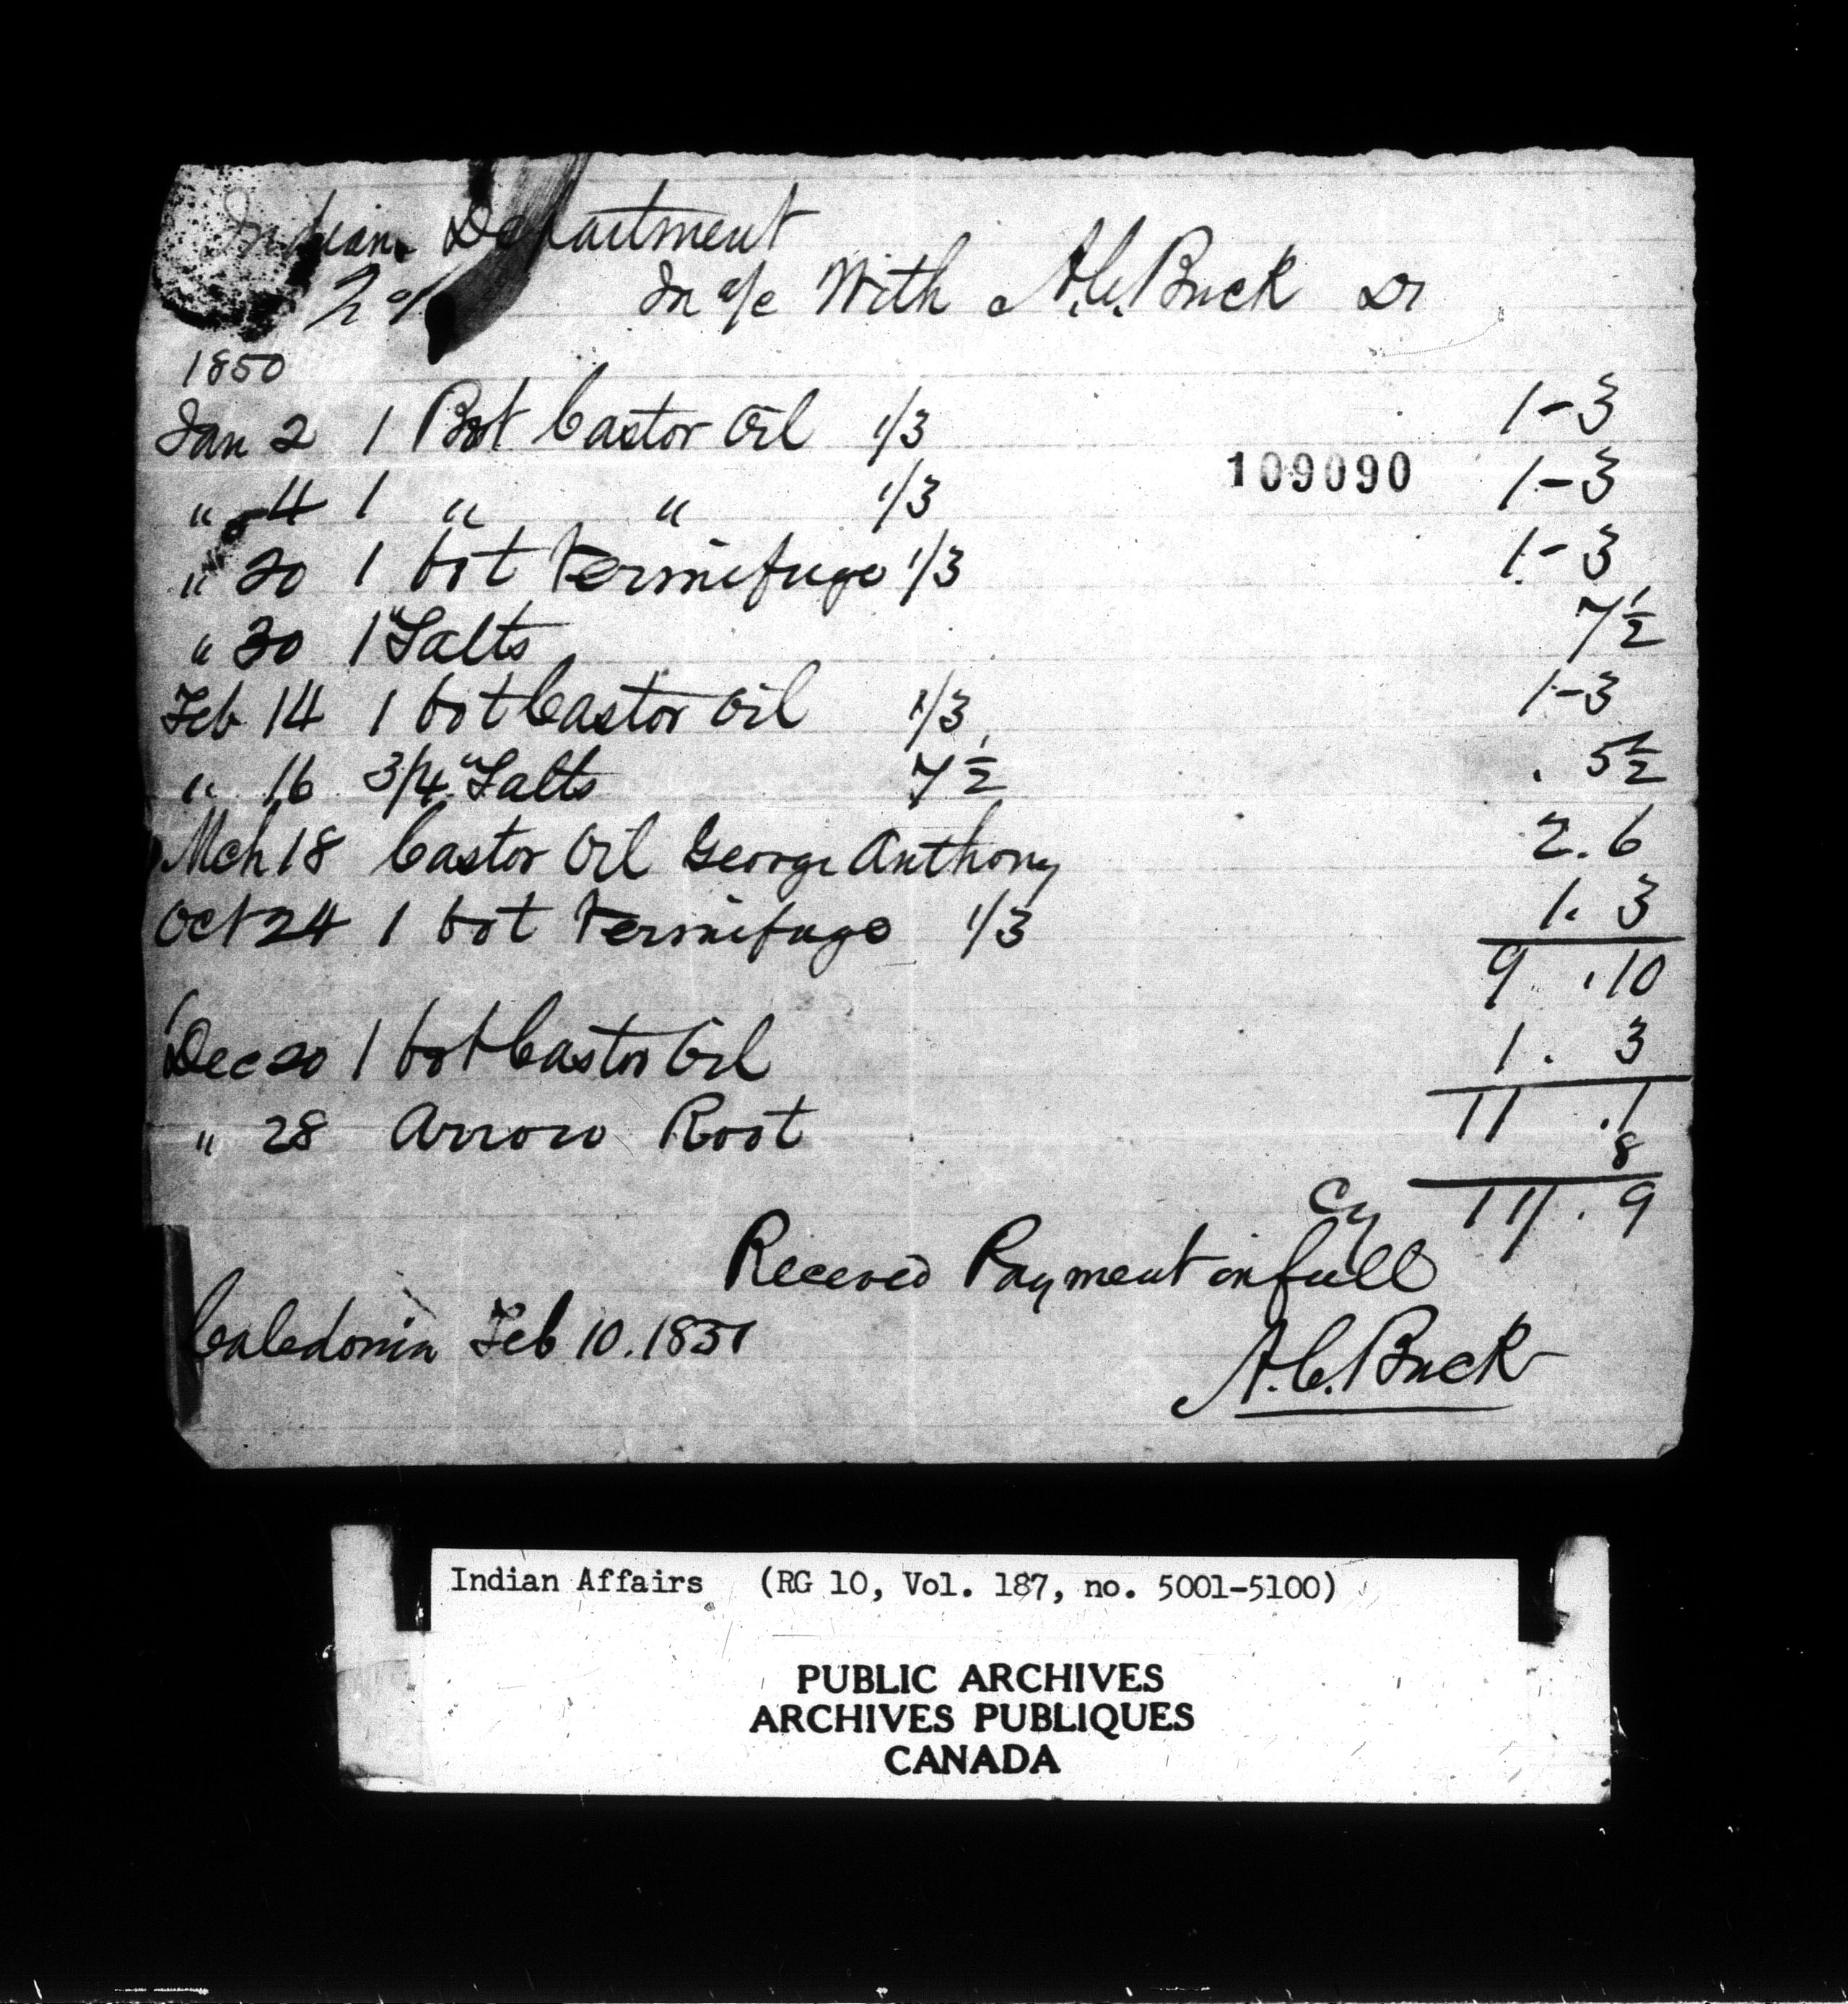 Indian Department
In a/c With A.C. Buck Dr
1850
Jan 2 1 Bot Castor Oil 1/3 1-3
" 4 1 " " 1/3 1-3
109090
" 20 1 bot Vermifuge 1/3 1-3
" 30 1 " Salts 7½
Feb 14 1 bot Castor Oil 1/3 1-3
" 16 3/4 " Salts 7½ 5½
Mch 18 Castor Oil George Anthony 2.6
Oct 24 1 bot Vermifuge 1/3 1.3
9.10
Dec 20 1 bot Castor Oil 1.3
11.1
" 28 Arrow Root 8
Cy 11.9
Receved Payment in full
Caledonia Feb 10. 1851
A.C. Buck
Indian Affairs (RG 10, Vol. 187, no. 5001-5100)
PUBLIC ARCHIVES
ARCHIVES PUBLIQUES
CANADA